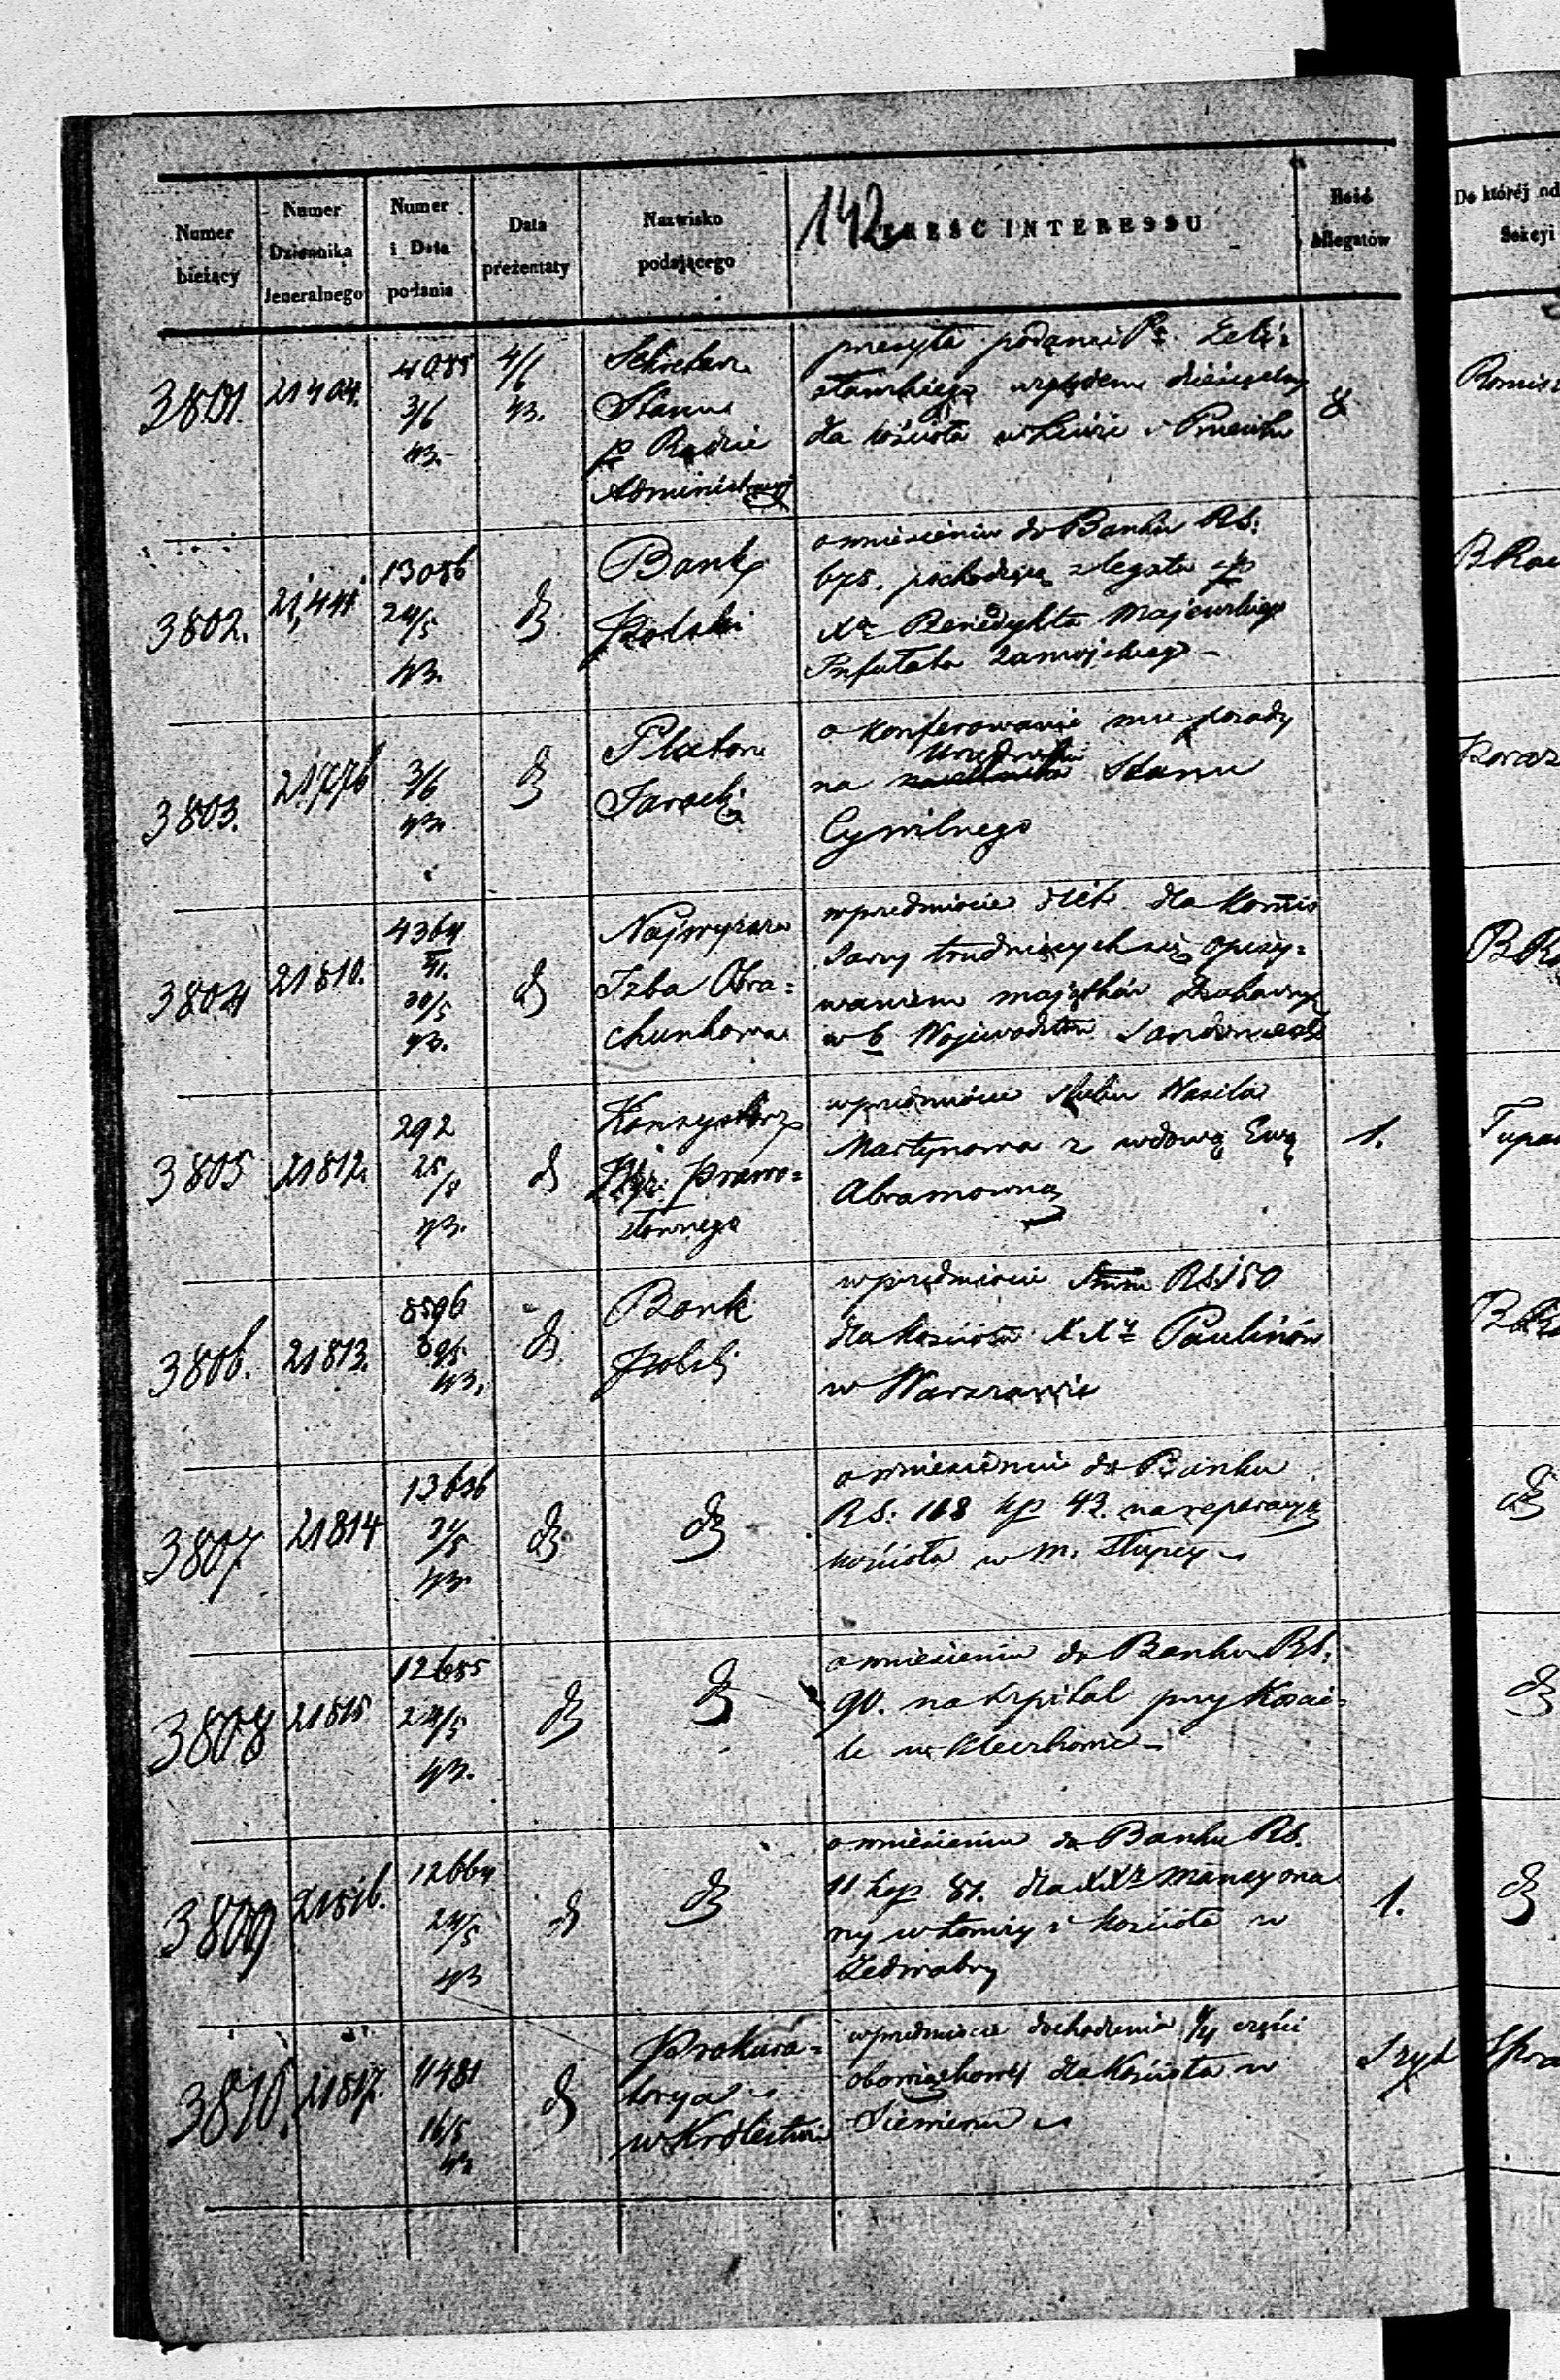 142
Numer bieżący
Numer Dziennika Jeneralnego
Numer i Data podania
Data prezentaty
Nazwisko podającego
TREŚĆ INTERESSU
Ilość Allegatów
Do któréj od
Sekcyi
3801. 21404. 4085 3/6 43. 4/6 43.
Sekretarz
Stanu
p Radzie
Administracyj
przesyła podanie Pa
względem dziesięciny
dla kościoła w i
3802. 21,441 13086 24/5 43. d
Bank
Polski
o wniesieniu do Banku RS.
675. pochodzące z legatu śp
Xa Benedykta Majewskiego
Infułata Zamojskiego
B
3803. 21776 3/6 43. d
Platon
Jarocki
o konferowanie mu posady
na Urzędnika Stanu
Cywilnego
3804 21810. 4364 30/5 43. d
Najwyższa
Izba Obra=
chunkowa
w przedmiocie diét. dla Komis
sarzy trudniących się opisy=
waniem majątków
w b Województwie Sandomiersk
3805 21812. 292 25/8 43. d
Konsystorz
prawo=
sławnego
w przedmiocie ślubu Wasila
Martynowa z wdową Ewą
Abramowną
1.
3806. 21813. 8596 43. d
Bank
Polski
w przedmiocie Summ RS. 150
dla Kościoła XXy Paulinów
w Warszawie
3807 21814 13636 31/5 43. d
d
o wniesieniu do Banku
RS. 168 kp 43. na reparacyą
kościoła w m. Słupcy
d
3808 21815 12655 24/5 43. d
d
o wniesieniu do Banku RS.
90. na szpital przy Koście=
le w Kleczkowie
d
3809 21816. 12664 24/5 43 d
d
o wniesieniu do Banku RS.
11 kop 81. dla XXy Mansyona
rzy w Łomży i kościoła w
Jedwabny
1.
d
3810. 21817. 11481 16/5 43 d
Prokura=
torya
w Królestwie
w przedmiocie dochodzenia 1/4 części
obowiązkowéj dla Kościoła w
Siemieniu